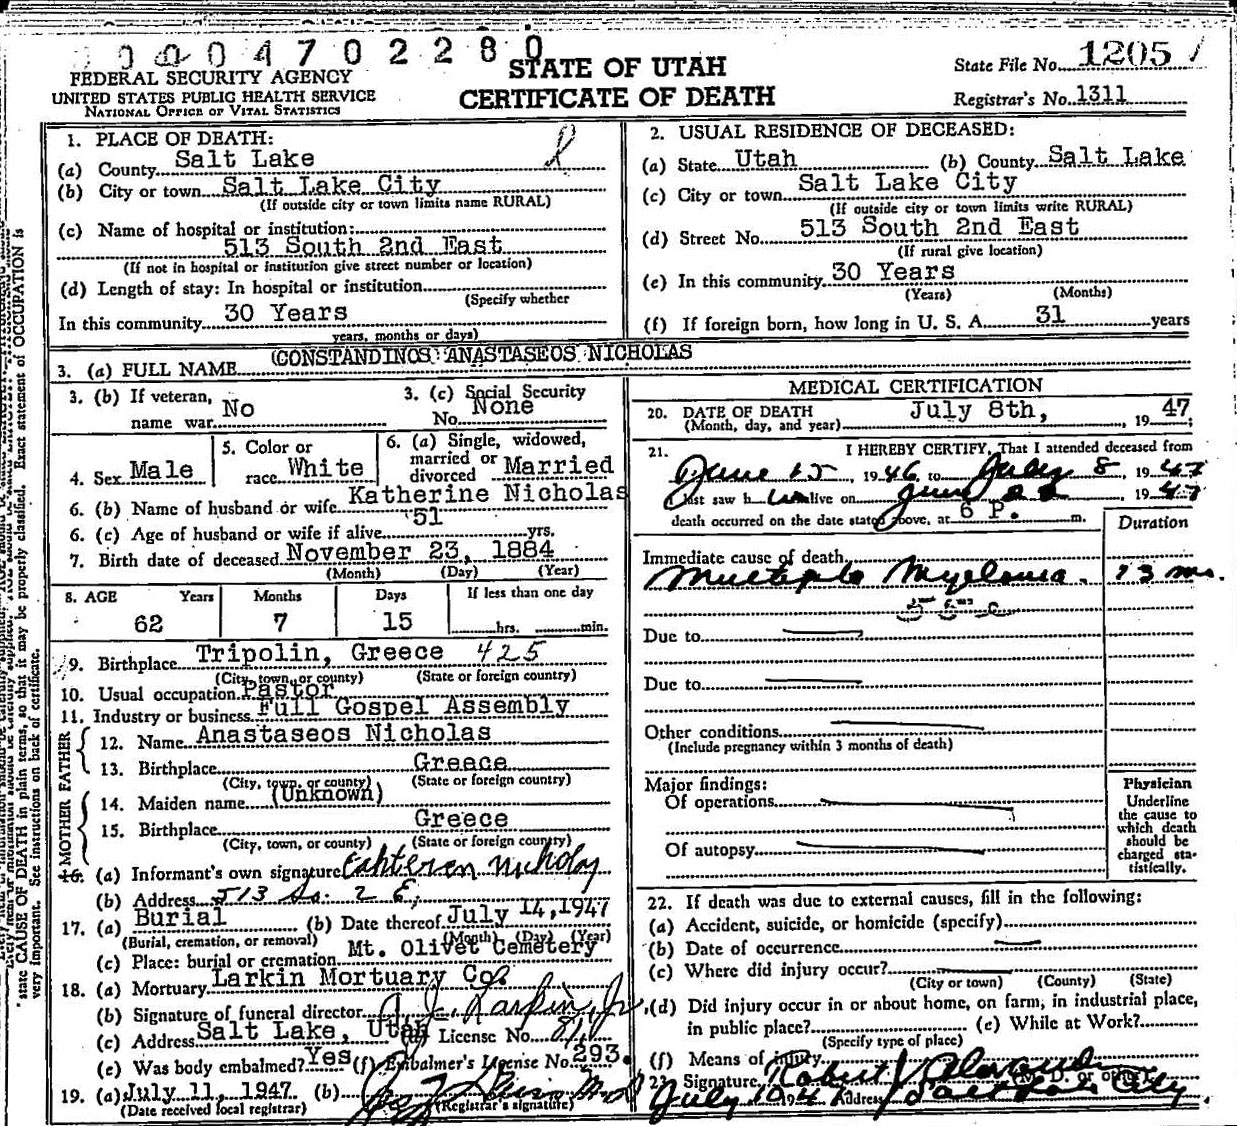 0004702280
STATE OF UTAH
CERTIFICATE OF DEATH
FEDERAL SECURITY AGENCY
UNITED STATES PUBLIC HEALTH SERVICE
NATIONAL OFFICE OF VITAL STATISTICS
State File No. 1205
Registrar's No. 1311
1. PLACE OF DEATH:
(a) County Salt Lake
(b) City or town Salt Lake City
(If outside city or town limits name RURAL)
(c) Name of hospital or institution:
513 South 2nd East
(If not in hospital or institution give street number or location)
(d) Length of stay: In hospital or institution
(Specify whether
In this community 30 Years
years, months or days)
2. USUAL RESIDENCE OF DECEASED:
(a) State Utah (b) County Salt Lake
(c) City or town Salt Lake City
(If outside city or town limits write RURAL)
(d) Street No. 513 South 2nd East
(If rural give location)
(e) In this community 30 Years
(Years) (Months)
(f) If foreign born, how long in U. S. A. 31 years
3. (a) FULL NAME (CONSTANDINOS) ANASTASEOS NICHOLAS
3. (b) If veteran, name war No
3. (c) Social Security No. None
4. Sex Male
5. Color or race White
6. (a) Single, widowed, married or divorced Married
6. (b) Name of husband or wife Katherine Nicholas
6. (c) Age of husband or wife if alive 51 yrs.
7. Birth date of deceased November 23, 1884
(Month) (Day) (Year)
8. AGE Years Months Days If less than one day
62 7 15 hrs. min.
9. Birthplace Tripolin, Greece 425
(City, town, or county) (State or foreign country)
10. Usual occupation Pastor
11. Industry or business Full Gospel Assembly
FATHER
12. Name Anastaseos Nicholas
13. Birthplace Greece
(City, town, or county) (State or foreign country)
MOTHER
14. Maiden name (Unknown)
15. Birthplace Greece
(City, town, or county) (State or foreign country)
16. (a) Informant's own signature Nicholas
(b) Address 513 So. 2 E.
17. (a) Burial (b) Date thereof July 14, 1947
(Burial, cremation, or removal) (Month) (Day) (Year)
(c) Place: burial or cremation Mt. Olivet Cemetery
18. (a) Mortuary Larkin Mortuary Co.
(b) Signature of funeral director Larkin, Jr
(c) Address Salt Lake, Utah (d) License No.
(e) Was body embalmed? Yes (f) Embalmer's License No. 293.
19. (a) July 11, 1947 (b)
(Date received local registrar) (Registrar's signature)
MEDICAL CERTIFICATION
20. DATE OF DEATH July 8th, 1947;
(Month, day, and year)
21. I HEREBY CERTIFY, That I attended deceased from
June 15 1946 to July 8, 1947
I last saw h im alive on June 22 1947
death occurred on the date stated above, at 6 P. m.
Duration
Immediate cause of death
Multiple Myeloma. 13 mo.
Due to
Due to
Other conditions
(Include pregnancy within 3 months of death)
Major findings:
Of operations
Of autopsy
Physician
Underline
the cause to
which death
should be
charged sta-
tistically.
22. If death was due to external causes, fill in the following:
(a) Accident, suicide, or homicide (specify)
(b) Date of occurrence
(c) Where did injury occur?
(City or town) (County) (State)
(d) Did injury occur in or about home, on farm, in industrial place,
in public place? (e) While at Work?
(Specify type of place)
(f) Means of injury
23. Signature Robert Alexander M. D. or other
July 10 1947 Address Salt Lake City
state CAUSE OF DEATH in plain terms, so that it may be properly classified. Exact statement of OCCUPATION is
very important. See instructions on back of certificate.